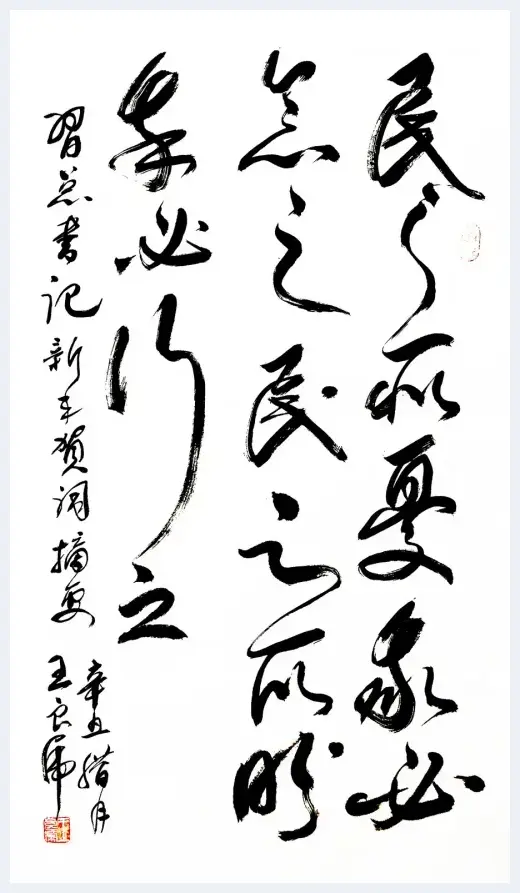 民之所憂我必
念之民之所盼
我必行之
習总書记新年賀詞摘要
辛丑腊月
王良虎